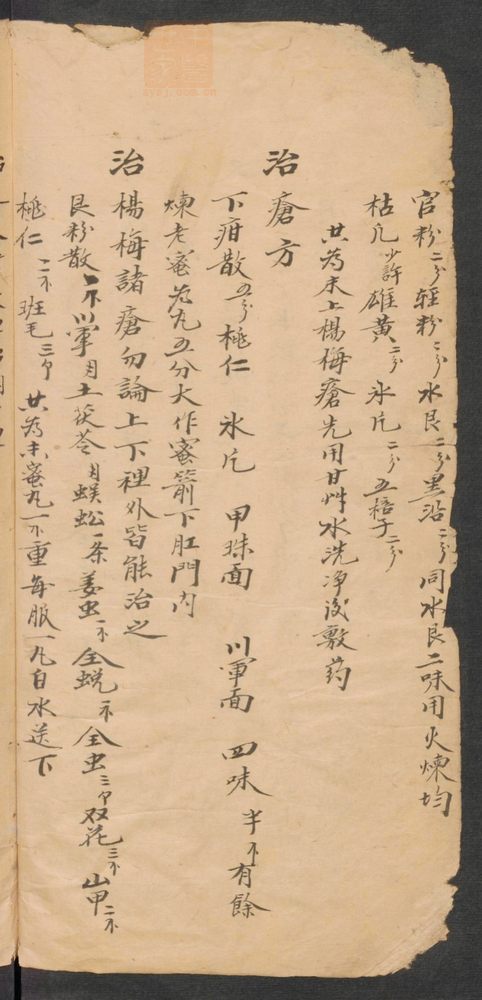 官粉二分輕粉二分水艮二分黑沿二分同水艮二味用火煉均
枯凡少許雄黃二分氷片二分五棓子二分
共為末上楊梅瘡先用甘艸水洗净後敷药
治瘡方
下疳散五分桃仁 氷片 甲珠面 川軍面 四味半 有餘
煉老蜜為丸五分大作蜜箭下肛門内
治楊梅諸瘡勿論上下裡外皆能治之
艮粉散 川軍 土茯苓 蜈蚣一条姜虫 全蜕 全虫三 双花三 山甲二
桃仁二 班毛三 共為末蜜丸一 重每服一丸白水送下